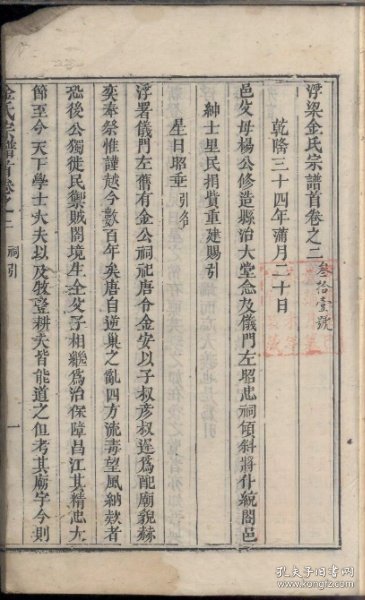 浮梁金氏宗譜首卷之二
叁拾壹號
乾隆三十四年蒲月二十日
邑父母楊公修造縣治大堂念及儀門左昭忠祠傾斜將仆統閤邑
紳士里民捐貲重建賜引
星日昭垂 引名
浮署儀門左舊有金公祠祀唐令金安以子叔彥叔遲為配廟貌赫
奕奉祭惟謹越今數百年矣唐自逆巢之亂四方流毒望風納欵者
恐後公獨徙民禦賊闔境生全父子相繼為治保障昌江其精忠大
節至今天下學士大夫以及牧豎耕夫皆能道之但考其廟宇今則
金氏宗譜首卷之二 祠引 一
孔夫子旧书网